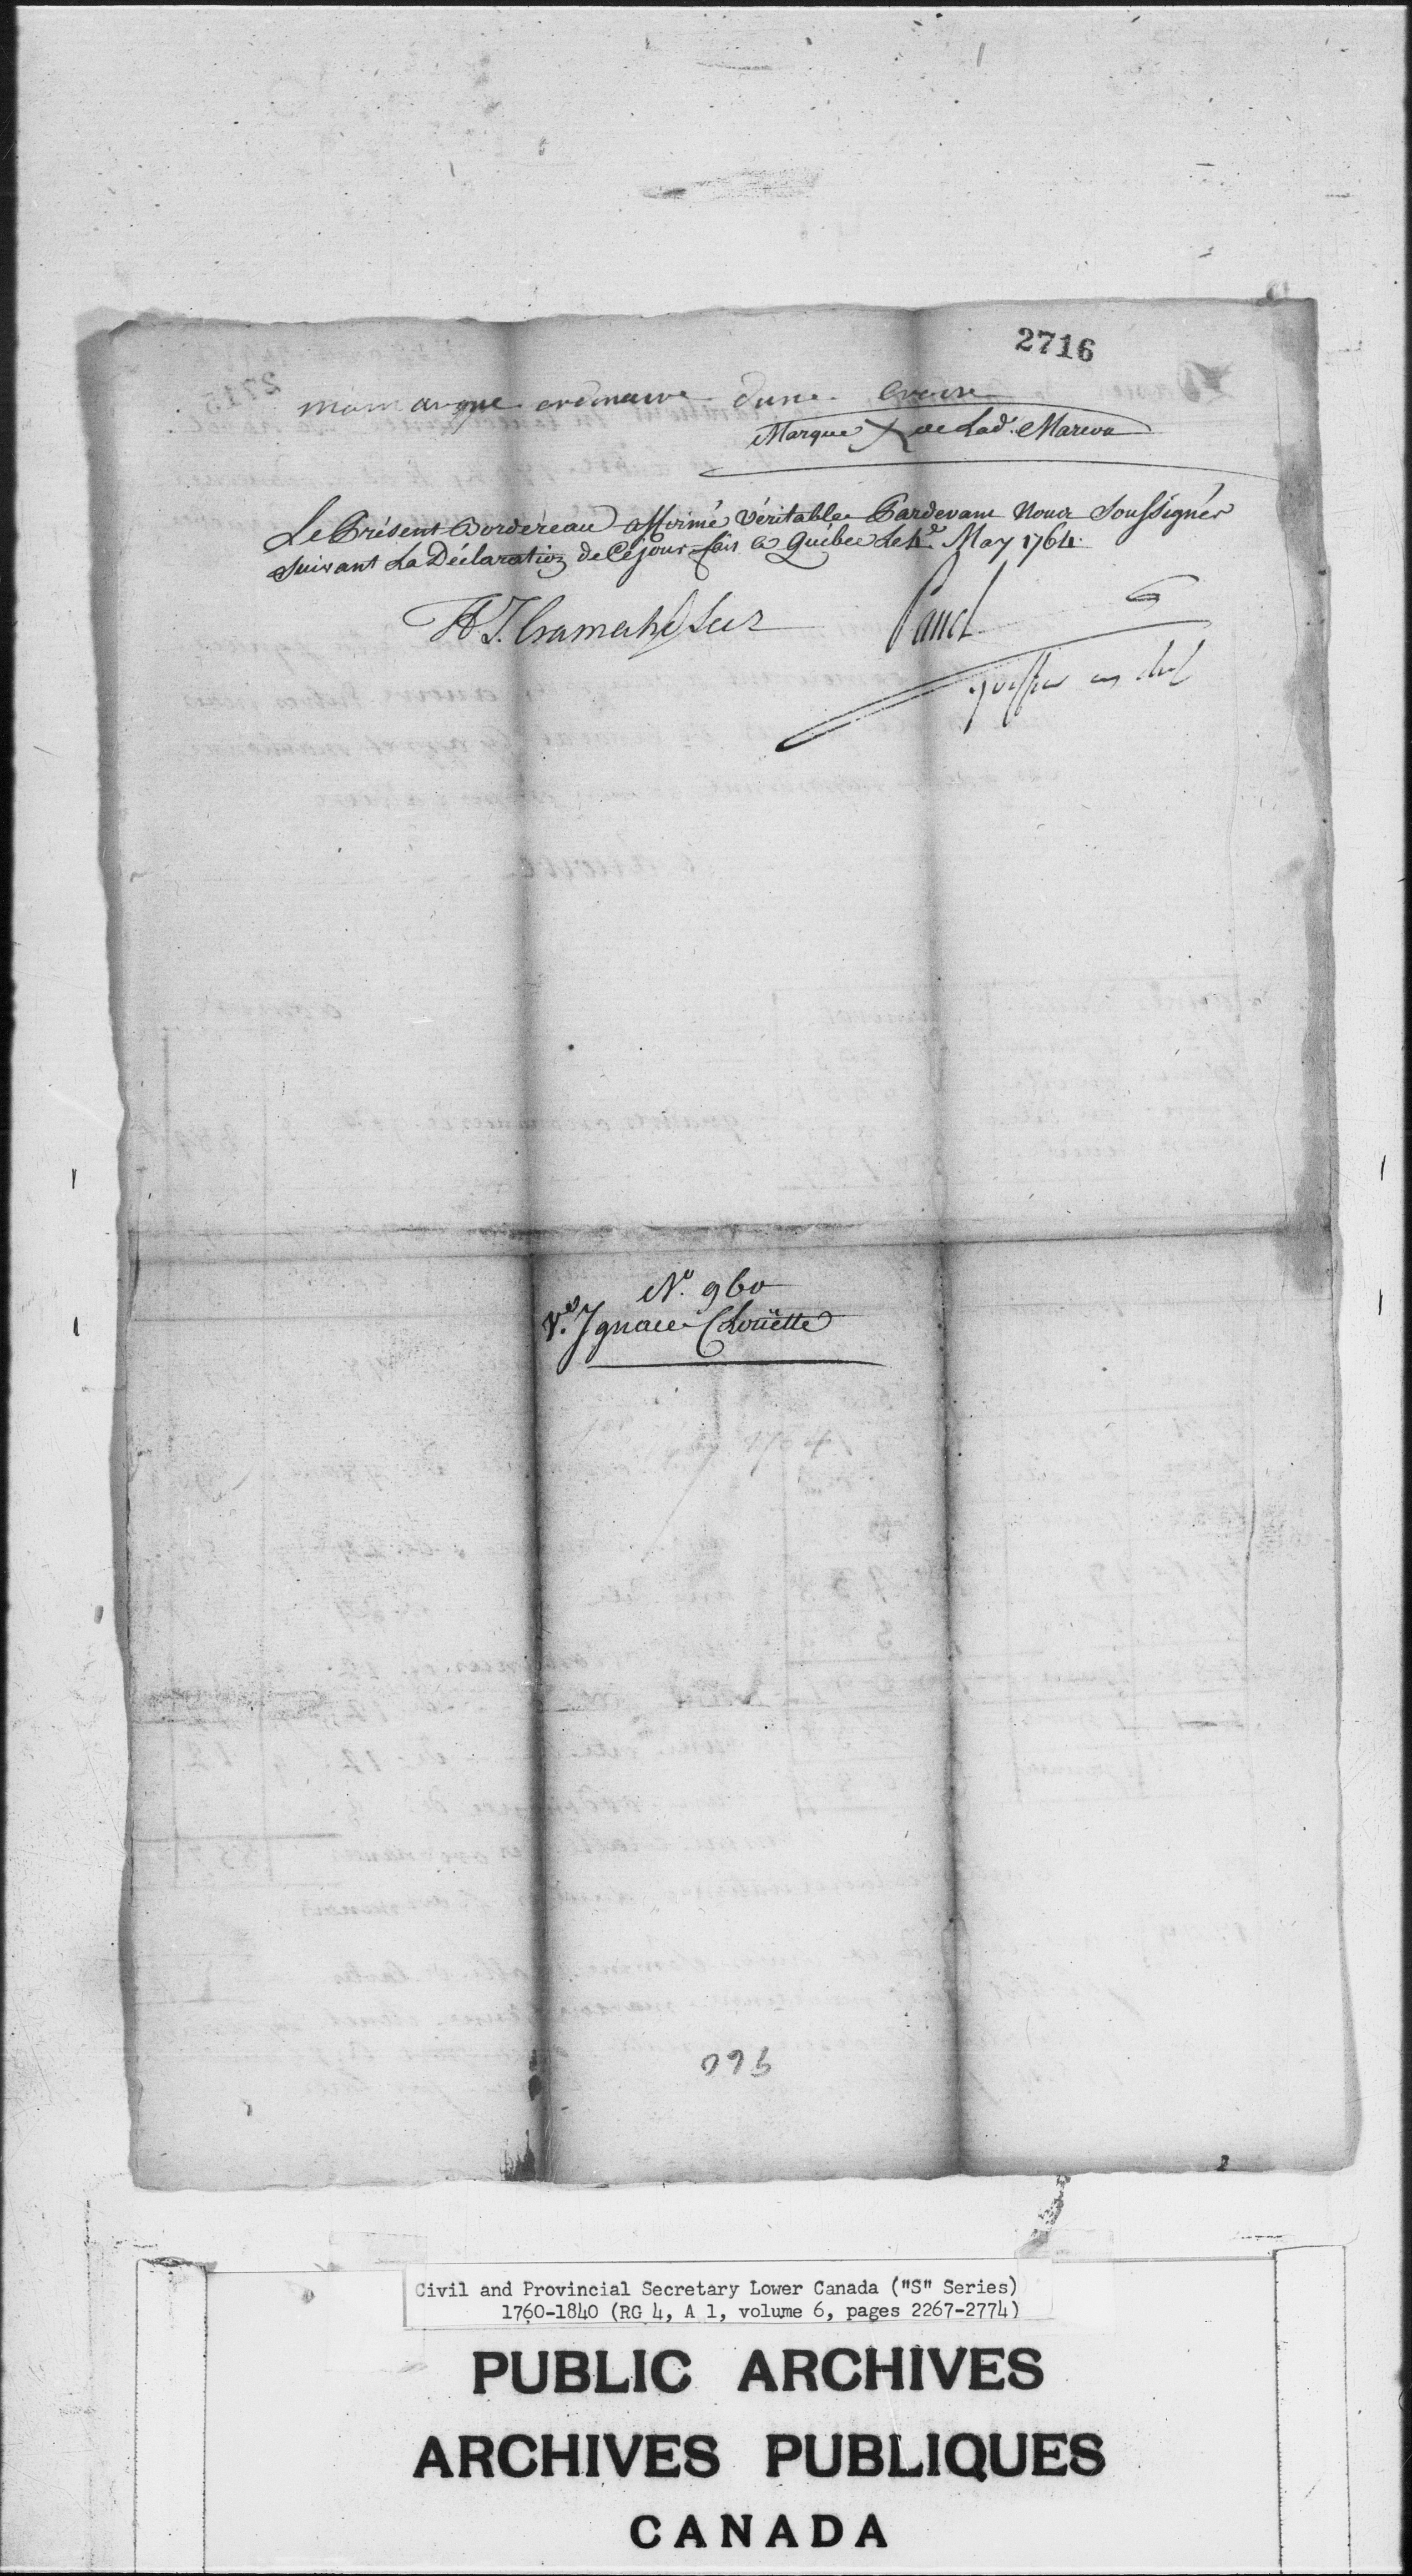 2716
mamarque ordinaire dune Croix
Marque X de Lad. Mareva
Le Présent Bordéreau affirmé véritable Pardevant Nous Soussignés
Suivant La Déclaration de Cejour fait a Québec Le 4e May 1764.
H. T. Cramahé Secr
Panet
greffier en chef
No. 960
Ve. Ignace Chouëtte
960
Civil and Provincial Secretary Lower Canada ("S" Series)
1760-1840 (RG 4, A 1, volume 6, pages 2267-2774)
PUBLIC ARCHIVES
ARCHIVES PUBLIQUES
CANADA